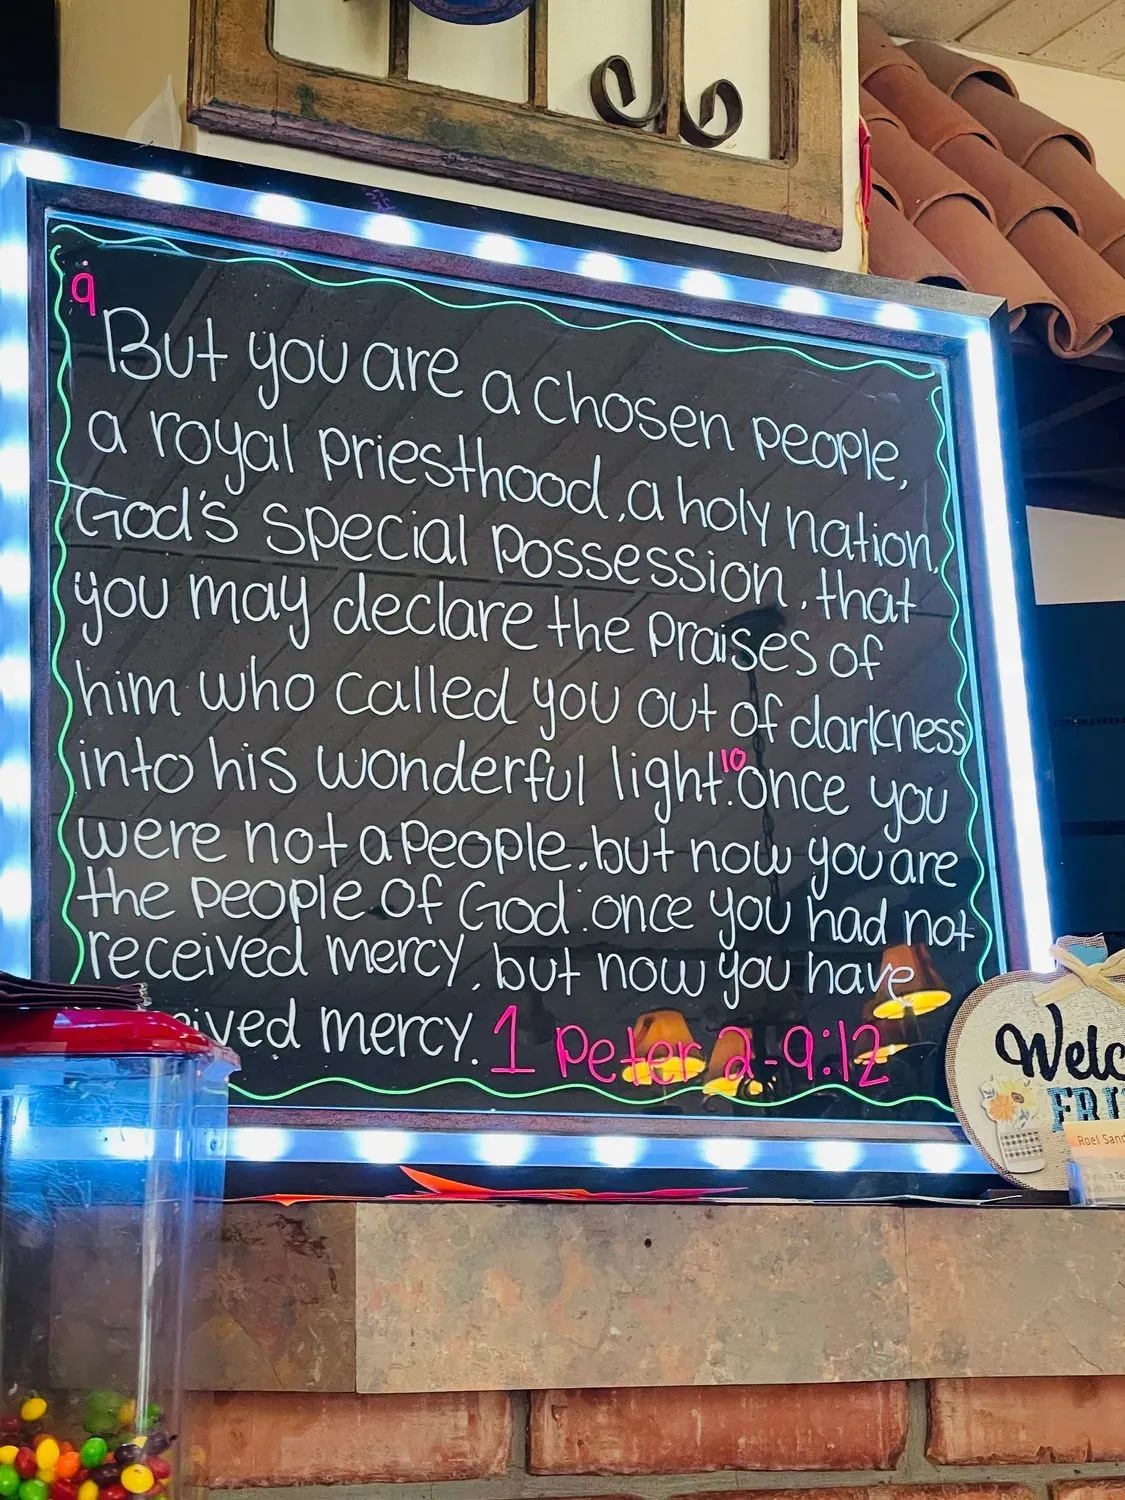 9
But you are a chosen people,
a royal priesthood, a holy nation,
God's special possession, that
you may declare the praises of
him who called you out of darkness
into his wonderful light. 10 Once you
were not a people, but now you are
the people of God: once you had not
received mercy, but now you have
ived mercy. 1 Peter 2-9:12
Welc
FRI
Roel Sand